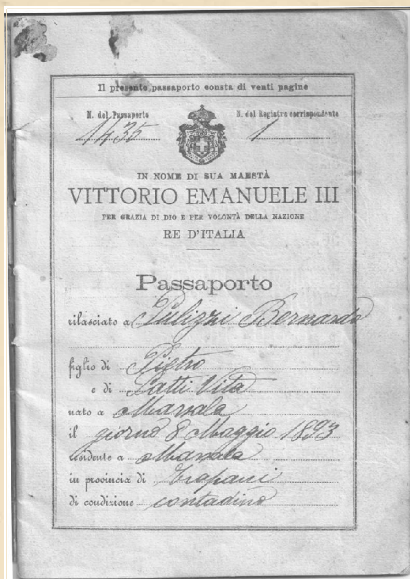 Il presente passaporto consta di venti pagine
N. del Passaporto
N. del Registro corrispondente
1435
1
IN NOME DI SUA MAESTÀ
VITTORIO EMANUELE III
PER GRAZIA DI DIO E PER VOLONTÀ DELLA NAZIONE
RE D'ITALIA
Passaporto
rilasciato a Pulizzi Bernardo
figlio di Pietro
e di Vita
nato a Marsala
il giorno 8 Maggio 1893
residente a Marsala
in provincia di Trapani
di condizione contadino